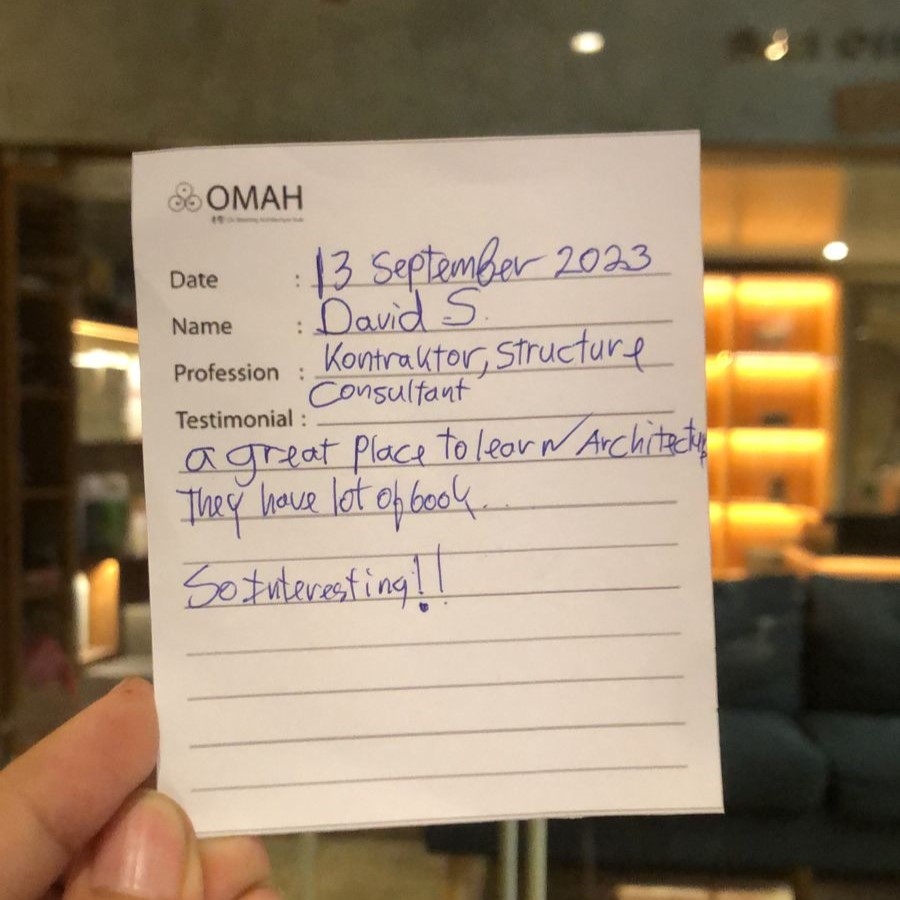 OMAH
Date : 13 September 2023
Name : David S.
Profession : Kontraktor, Structure
Consultant
Testimonial :
a great place to learn Architectur
They have lot of book...
So Interesting!!